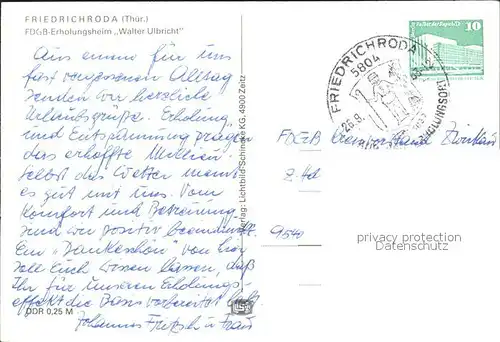 FRIEDRICHRODA (Thür.)
FDGB-Erholungsheim „Walter Ulbricht"
Aus einem für uns
fast vergessenen Alltag
senden wir herzliche
Urlaubsgrüße. Erholung
und Entspannung prägen
das erhoffte Milieu.
Selbst das Wetter meint
es gut mit uns. Vom
Komfort und Betreuung
sind wir positiv beeindruckt.
Ein „Dankeschön" von hier
soll Euch wissen lassen, daß
Ihr für unseren Erholungs-
effekt die Basis vorbereitet habt
Johannes Fritzsch u. Frau
DDR 0,25 M
Verlag: Lichtbild Schincke KG, 4900 Zeitz
FRIEDRICHRODA
5804
26.8.
10
FDGB Zwickau
9540
privacy protection
Datenschutz